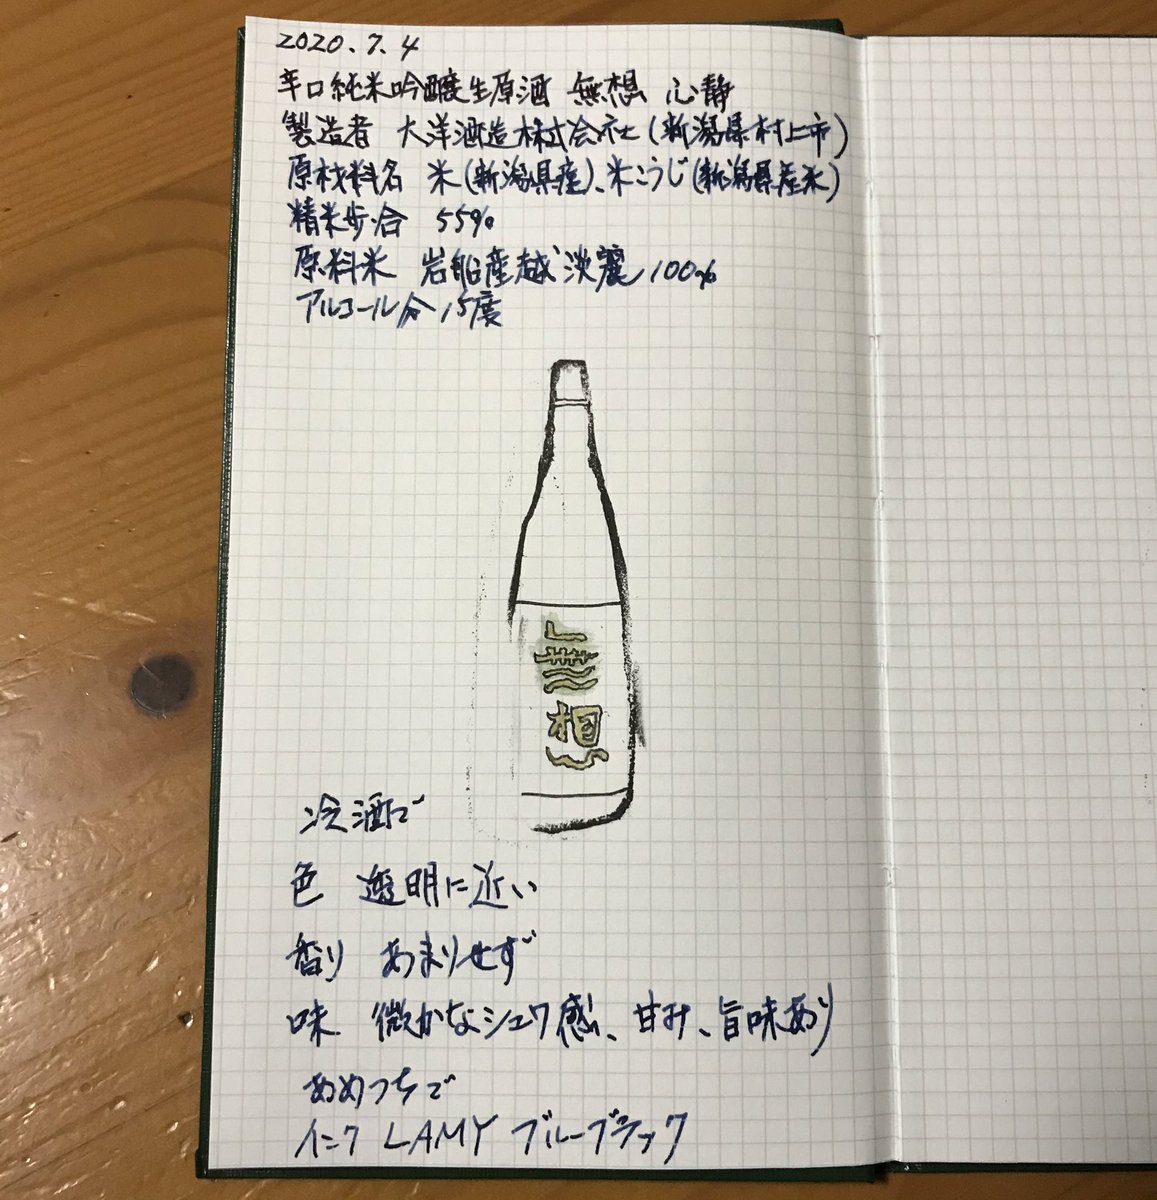 2020.7.4
辛口純米吟醸生原酒 無想 心静
製造者 大洋酒造株式会社(新潟県村上市)
原材料名 米(新潟県産)、米こうじ(新潟県産米)
精米歩合 55%
原料米 岩船産越淡麗100%
アルコール分15度
無想
冷酒で
色 透明に近い
香り あまりせず
味 微かなシュワ感、甘み、旨味あり
あめつちで
インク LAMY ブルーブラック